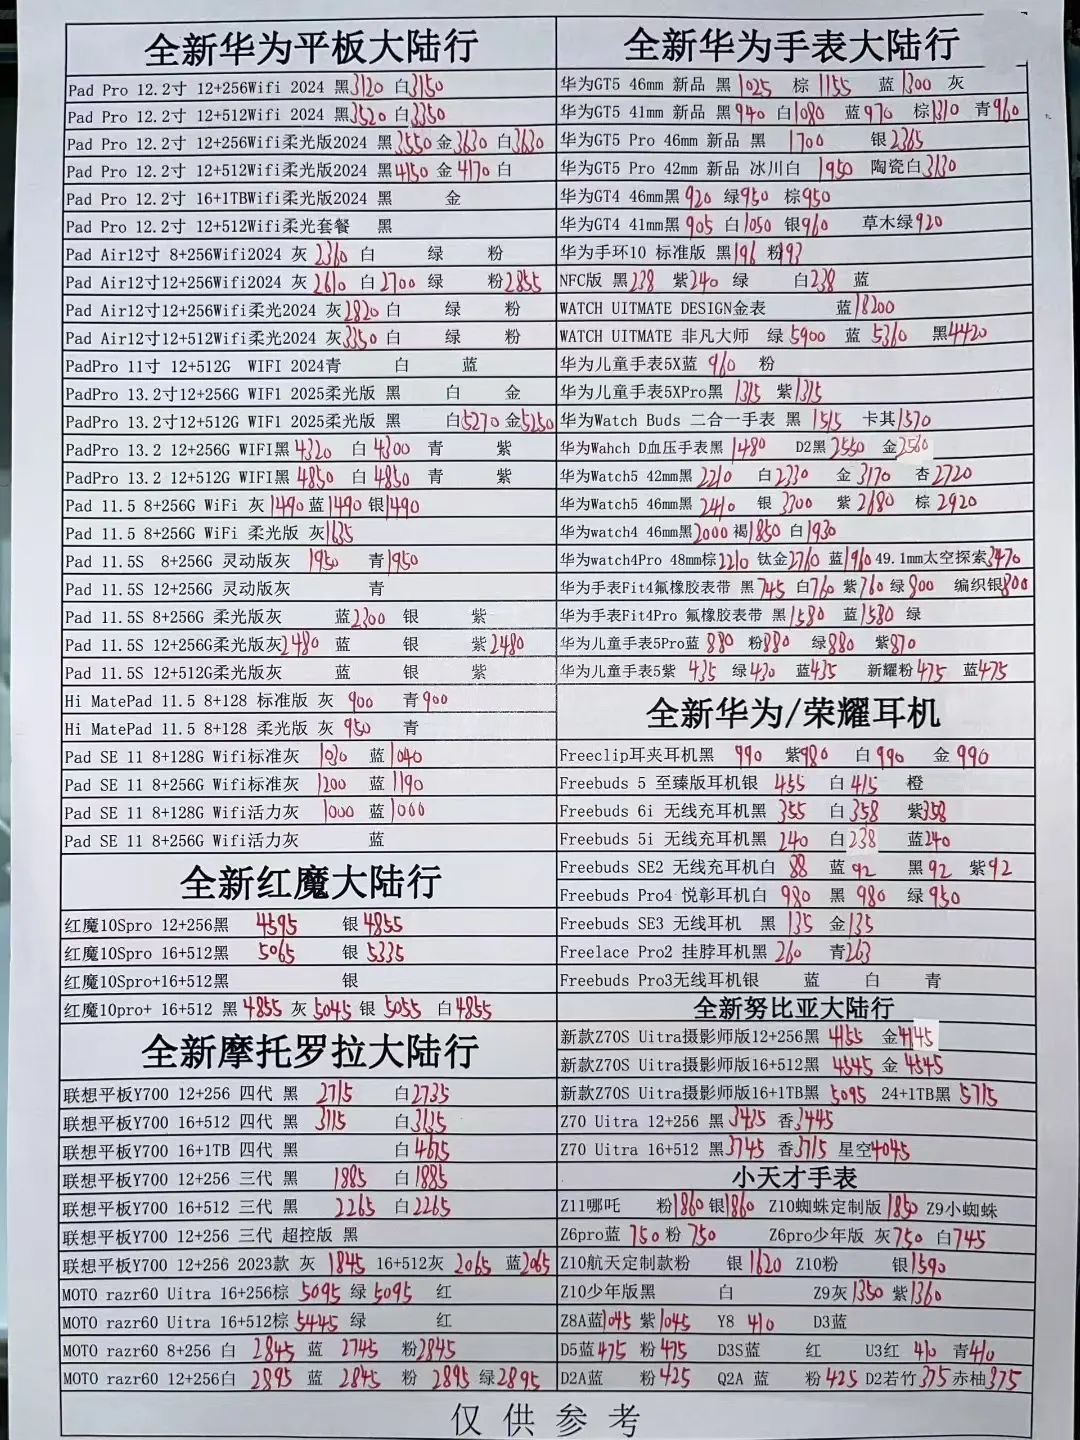 全新华为平板大陆行
Pad Pro 12.2寸 12+256Wifi 2024 黑3120 白3150
Pad Pro 12.2寸 12+512Wifi 2024 黑3520 白3350
Pad Pro 12.2寸 12+256Wifi柔光版2024 黑3550 金3630 白3630
Pad Pro 12.2寸 12+512Wifi柔光版2024 黑4150 金4170 白
Pad Pro 12.2寸 16+1TBWifi柔光版2024 黑 金
Pad Pro 12.2寸 12+512Wifi柔光套餐 黑
Pad Air12寸 8+256Wifi2024 灰 2360 白 绿 粉
Pad Air12寸 12+256Wifi2024 灰 2610 白 2700 绿 粉2855
Pad Air12寸 12+256Wifi柔光2024 灰2820 白 绿 粉
Pad Air12寸 12+512Wifi柔光2024 灰3350 白 绿 粉
PadPro 11寸 12+512G WIFI 2024青 白 蓝
PadPro 13.2寸12+256G WIF1 2025柔光版 黑 白 金
PadPro 13.2寸12+512G WIF1 2025柔光版 黑 白5270 金5250
PadPro 13.2 12+256G WIFI黑 4320 白 4300 青 紫
PadPro 13.2 12+512G WIFI黑 4850 白 4850 青 紫
Pad 11.5 8+256G WiFi 灰 1490 蓝1490 银1490
Pad 11.5 8+256G WiFi 柔光版 灰1635
Pad 11.5S 8+256G 灵动版灰 1950 青1950
Pad 11.5S 12+256G 灵动版灰 青
Pad 11.5S 8+256G 柔光版灰 蓝2300 银 紫
Pad 11.5S 12+256G 柔光版灰2480 蓝 银 紫2480
Pad 11.5S 12+512G柔光版灰 蓝 银 紫
Hi MatePad 11.5 8+128 标准版 灰 900 青900
Hi MatePad 11.5 8+128 柔光版 灰 950 青
Pad SE 11 8+128G Wifi标准灰 1030 蓝1040
Pad SE 11 8+256G Wifi标准灰 1200 蓝1190
Pad SE 11 8+128G Wifi活力灰 1000 蓝1000
Pad SE 11 8+256G Wifi活力灰 蓝
全新红魔大陆行
红魔10Spro 12+256黑 4595 银4855
红魔10Spro 16+512黑 5065 银5335
红魔10Spro+16+512黑 银
红魔10pro+ 16+512 黑4855 灰 5045 银 5055 白4855
全新摩托罗拉大陆行
联想平板Y700 12+256 四代 黑 2715 白2735
联想平板Y700 16+512 四代 黑 3115 白3125
联想平板Y700 16+1TB 四代 黑 白4675
联想平板Y700 12+256 三代 黑 1885 白1885
联想平板Y700 16+512 三代 黑 2265 白2265
联想平板Y700 12+256 三代 超控版 黑
联想平板Y700 12+256 2023款 灰 1845 16+512灰 2065 蓝2065
MOTO razr60 Uitra 16+256棕 5095 绿5095 红
MOTO razr60 Uitra 16+512棕 5445 绿 红
MOTO razr60 8+256 白 2845 蓝 2745 粉2845
MOTO razr60 12+256白 2895 蓝 2845 粉 2895 绿2895
全新华为手表大陆行
华为GT5 46mm 新品 黑 1025 棕 1155 蓝 1300 灰
华为GT5 41mm 新品 黑 940 白1080 蓝970 棕1310 青960
华为GT5 Pro 46mm 新品 黑 1700 银2365
华为GT5 Pro 42mm 新品 冰川白 1950 陶瓷白3130
华为GT4 46mm黑 920 绿950 棕950
华为GT4 41mm黑 905 白1050 银960 草木绿920
华为手环10 标准版 黑196 粉193
NFC版 黑238 紫240 绿 白238 蓝
WATCH UITMATE DESIGN金表 蓝18200
WATCH UITMATE 非凡大师 绿 5900 蓝 5360 黑4420
华为儿童手表5X蓝 960 粉
华为儿童手表5XPro黑 1315 紫1315
华为Watch Buds 二合一手表 黑 1515 卡其1570
华为Wahch D血压手表黑 1480 D2黑2550 金2560
华为Watch5 42mm黑 2210 白2330 金 3170 杏2720
华为Watch5 46mm黑 2410 银 3300 紫 2680 棕 2920
华为watch4 46mm黑2000 褐1850 白1930
华为watch4Pro 48mm棕2210 钛金2760 蓝1960 49.1mm太空探索3470
华为手表Fit4氟橡胶表带 黑 745 白760 紫760 绿800 编织银800
华为手表Fit4Pro 氟橡胶表带 黑1580 蓝1580 绿
华为儿童手表5Pro蓝 880 粉880 绿880 紫870
华为儿童手表5紫 435 绿430 蓝435 新耀粉 475 蓝475
全新华为/荣耀耳机
Freeclip耳夹耳机黑 990 紫980 白 990 金 990
Freebuds 5 至臻版耳机银 455 白 415 橙
Freebuds 6i 无线充耳机黑 355 白358 紫358
Freebuds 5i 无线充耳机黑 240 白238 蓝240
Freebuds SE2 无线充耳机白 88 蓝 92 黑92 紫92
Freebuds Pro4 悦彰耳机白 980 黑 980 绿 950
Freebuds SE3 无线耳机 黑 135 金135
Freelace Pro2 挂脖耳机黑 260 青263
Freebuds Pro3无线耳机银 蓝 白 青
全新努比亚大陆行
新款Z70S Uitra摄影师版12+256黑 4155 金4145
新款Z70S Uitra摄影师版16+512黑 4545 金 4545
新款Z70S Uitra摄影师版16+1TB黑 5095 24+1TB黑 5715
Z70 Uitra 12+256 黑3435 香3445
Z70 Uitra 16+512 黑3745 香3715 星空4045
小天才手表
Z11哪吒 粉1860 银1860 Z10蜘蛛定制版 1850 Z9小蜘蛛
Z6pro蓝 750 粉 750 Z6pro少年版 灰750 白745
Z10航天定制款粉 银1620 Z10粉 银1590
Z10少年版黑 白 Z9灰1350 紫1360
Z8A蓝1045 紫1045 Y8 410 D3蓝
D5蓝475 粉475 D3S蓝 红 U3红 410 青410
D2A蓝 粉425 Q2A 蓝 粉425 D2若竹375 赤柚375
仅供参考